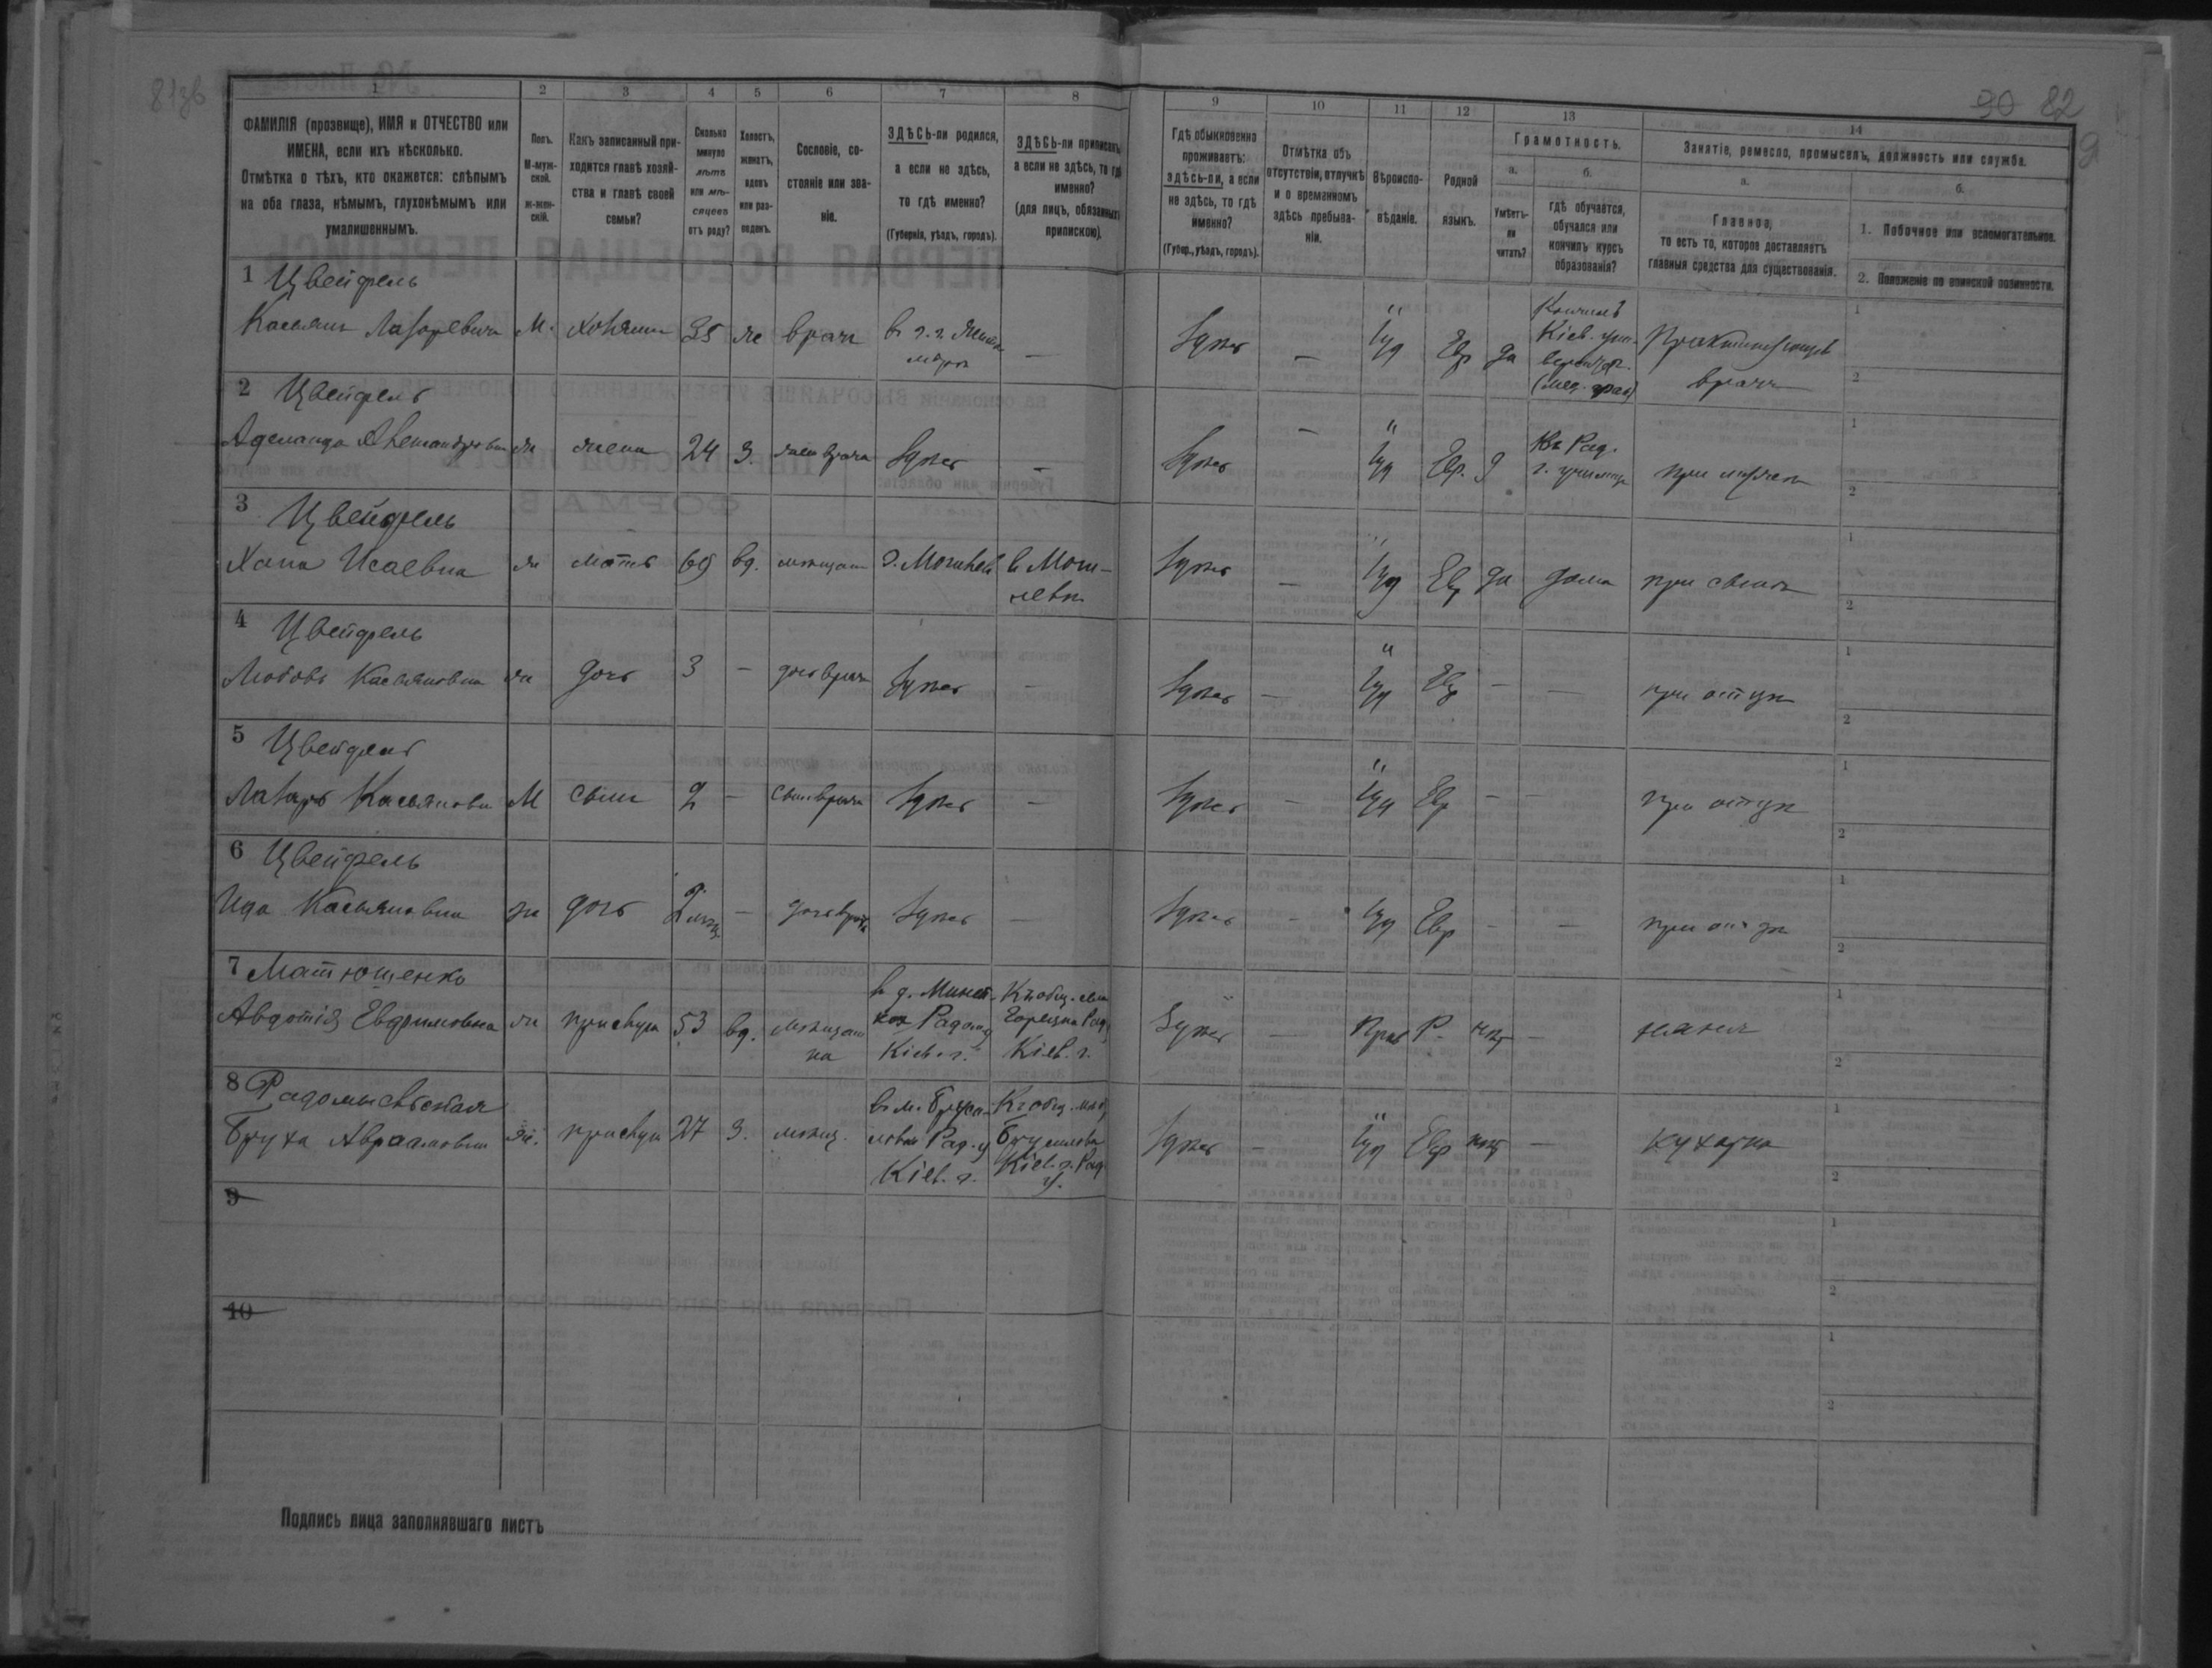 81зв
90 82
1 2 3 4 5 6 7 8 9 10 11 12 13 14
ФАМИЛІЯ (прозвище), ИМЯ и ОТЧЕСТВО или
ИМЕНА, если ихъ нѣсколько.
Отмѣтка о тѣхъ, кто окажется: слѣпымъ
на оба глаза, нѣмымъ, глухонѣмымъ или
умалишеннымъ.
Полъ.
М-муж-
ской.
ж-жен-
скій.
Какъ записанный при-
ходится главѣ хозяй-
ства и главѣ своей
семьи?
Сколько
минуло
лѣтъ
или мѣ-
сяцевъ
отъ роду?
Холостъ,
женатъ,
вдовъ
или раз-
веденъ.
Сословіе, со-
стояніе или зва-
ніе.
ЗДѢСЬ-ли родился,
а если не здѣсь,
то гдѣ именно?
(Губернія, уѣздъ, городъ).
ЗДѢСЬ-ли приписанъ,
а если не здѣсь, то гдѣ
именно?
(для лицъ, обязанныхъ
припискою).
Гдѣ обыкновенно
проживаетъ:
здѣсь-ли, а если
не здѣсь, то гдѣ
именно?
(Губер., уѣздъ, городъ).
Отмѣтка объ
отсутствіи, отлучкѣ
и о временномъ
здѣсь пребыва-
ніи.
Вѣроиспо-
вѣданіе.
Родной
языкъ.
Грамотность.
а.
Умѣетъ-
ли
читать?
б.
гдѣ обучается,
обучался или
кончилъ курсъ
образованія?
Занятіе, ремесло, промыселъ, должность или служба.
а.
Главное,
то есть то, которое доставляетъ
главныя средства для существованія.
б.
1. Побочное или вспомогательное.
2. Положеніе по воинской повинности.
1 Цвейфель
Касьянъ Лазаревичъ М. хозяинъ 35 же врачъ в г. г. Житомірѣ — Здѣсь — Іуд Евр да Кончилъ Кіев. университ. (мед. фак) Практикующій врачъ
2 Цвейфель
Аделаида ж жена 24 З. жена врача Здѣсь — Здѣсь — Іуд Евр. Рад. г. при мужѣ
3 Цвейфель
Хана Исаевна ж мать 69 вд. мѣщан г. Могилевъ в Могилевѣ Здѣсь — Іуд Евр да дома при сынѣ
4 Цвейфель
Любовь Касьяновна ж дочь 3 — дочь врача Здѣсь — Здѣсь — Іуд Евр — — при отцѣ
5 Цвейфель
Лазарь Касьянови М сынъ 2 — сынъ врача Здѣсь — Здѣсь — Іуд Евр — — при отцѣ
6 Цвейфель
Ида Касьяновна ж дочь 2 мѣс — дочь врача Здѣсь — Здѣсь — Іуд Евр — — при отцѣ
7 Матюшенко
Авдотія Евфимовна ж прислуга 53 вд. мѣщанка Кіев. г. Кіев. г. Здѣсь — Прав Р. нѣт — няня
8 Радомысльская
Бруха Авраамовна ж. прислуга 27 З. мѣщ. в м. Брусиловѣ Рад. у Кіев. г. К общ. Брусилова Кіев. г. Рад у. Здѣсь — Іуд Евр нѣт — кухарка
9
10
Подпись лица заполнявшаго листъ